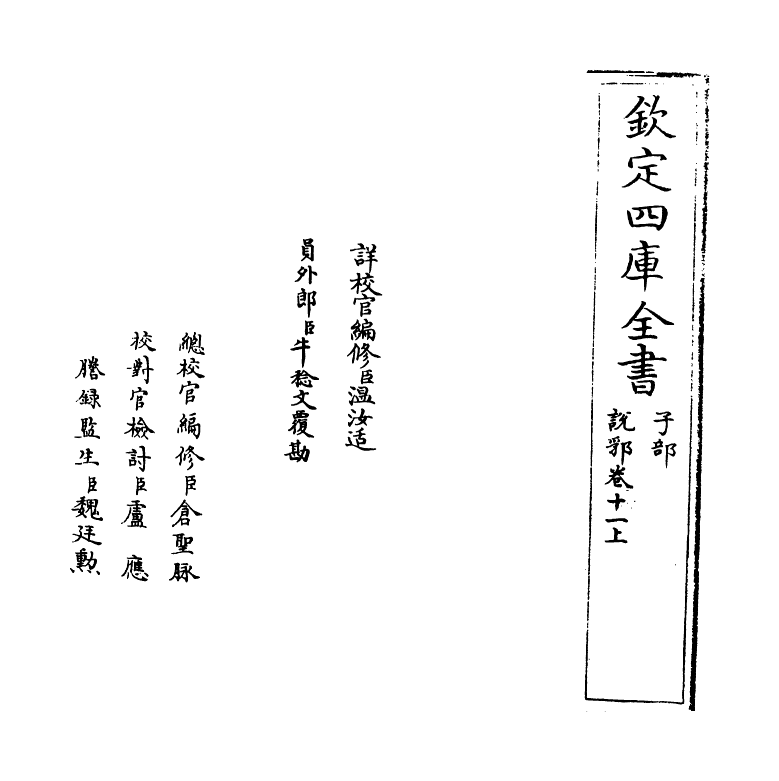 欽定四庫全書
子部
說郛卷十一上
詳校官編修臣温汝适
員外郎臣牛稔文覆勘
總校官編修臣倉聖脉
校對官檢討臣盧應
謄録監生臣魏廷勲